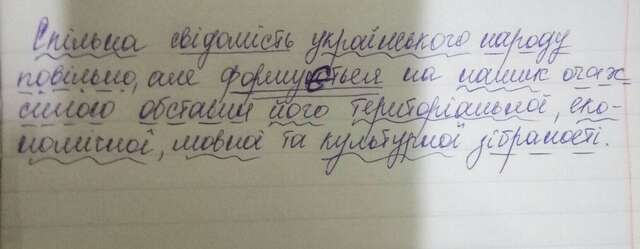 Спільна свідомість українського народу
повільно, але формується на наших очах
силою обставин його територіальної, еко-
номічної, мовної та культурної зібраності.